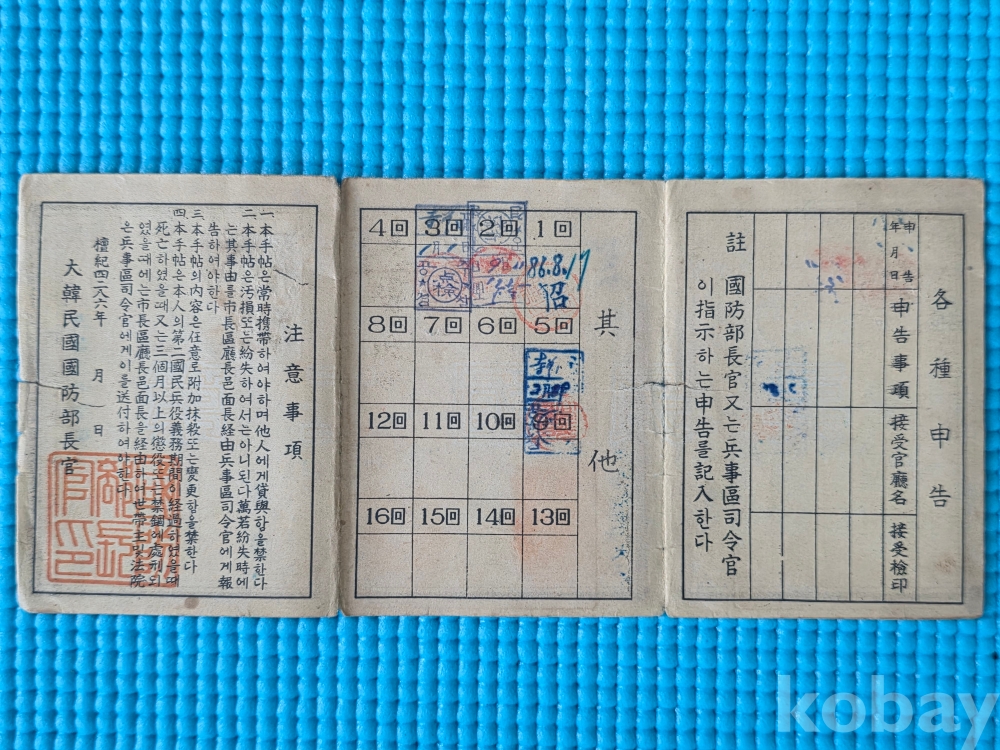 各種申告
申告年月日
申告事項
接受官廳名
接受檢印
註 國防部長官又는兵事區司令官
이指示하는申告를記入한다
其他
1回
2回
3回
4回
86.8.17
5回
6回
7回
8回
9回
10回
11回
12回
13回
14回
15回
16回
注意事項
一 本手帖은常時携帶하여야하며他人에게貸與함을禁한다
二 本手帖은汚損또는紛失하여서는아니된다萬若紛失時에
는其事由를市長區廳長邑面長経由兵事區司令官에게報
告하여야한다
三 本手帖의內容은任意로附加抹殺또는変更함을禁한다
四 本手帖은本人의第二國民兵役義務期間이経過하였을때
死亡하였을때又는三個月以上의懲役또는禁錮에處刑되
였을때에는市長區廳長邑面長을経由하여世帶主및法院
은兵事區司令官에게이를送付하여야한다
檀紀四二八六年 月 日
大韓民國國防部長官
kobay